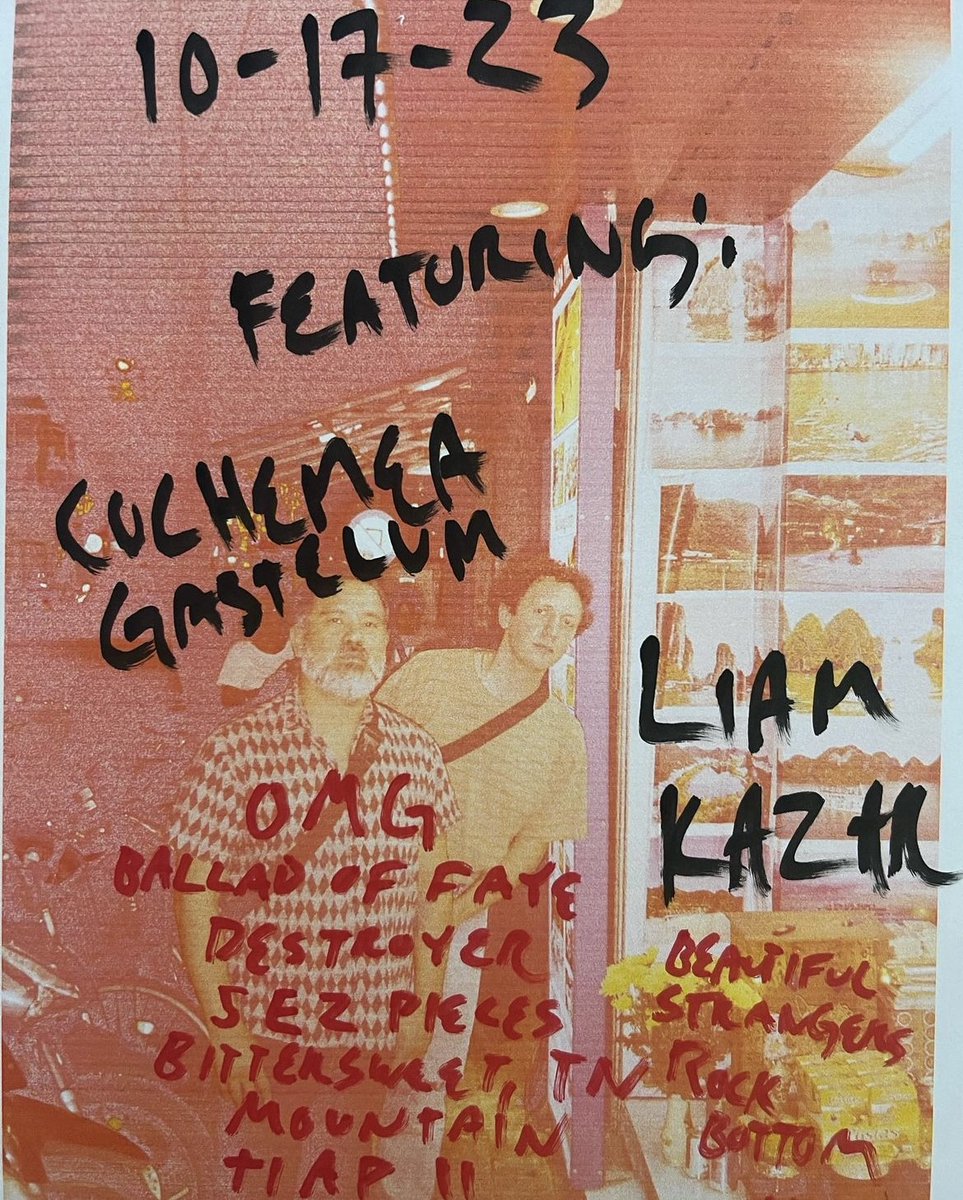 10-17-23
FEATURING:
CUCHEMEA
GASTELUM
LIAM
KAZAR
OMG
BALLAD OF FAYE
DESTROYER
SEZ PIECES
BITTERSWEET, TN
MOUNTAIN
TIAP II
BEAUTIFUL
STRANGERS
ROCK
BOTTOM